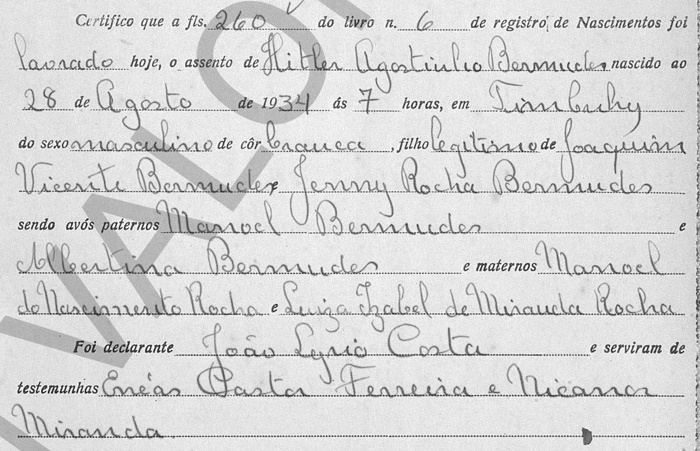 Certifico que a fls. 260 do livro n. 6 de registro de Nascimentos foi
lavrado hoje, o assento de Hitler Agostinho Bermudes nascido ao
28 de Agosto de 1934 ás 7 horas, em Timbuhy
do sexo masculino de côr branca, filho legitimo de Joaquim
Vicente Bermudes e Jenny Rocha Bermudes
sendo avós paternos Manoel Bermudes e
Albertina Bermudes e maternos Manoel
do Nascimento Rocha e Luiza Izabel de Miranda Rocha
Foi declarante João Lyrio Costa e serviram de
testemunhas Enéas Pastor Ferreira e Nicanor
Miranda.
VALOR